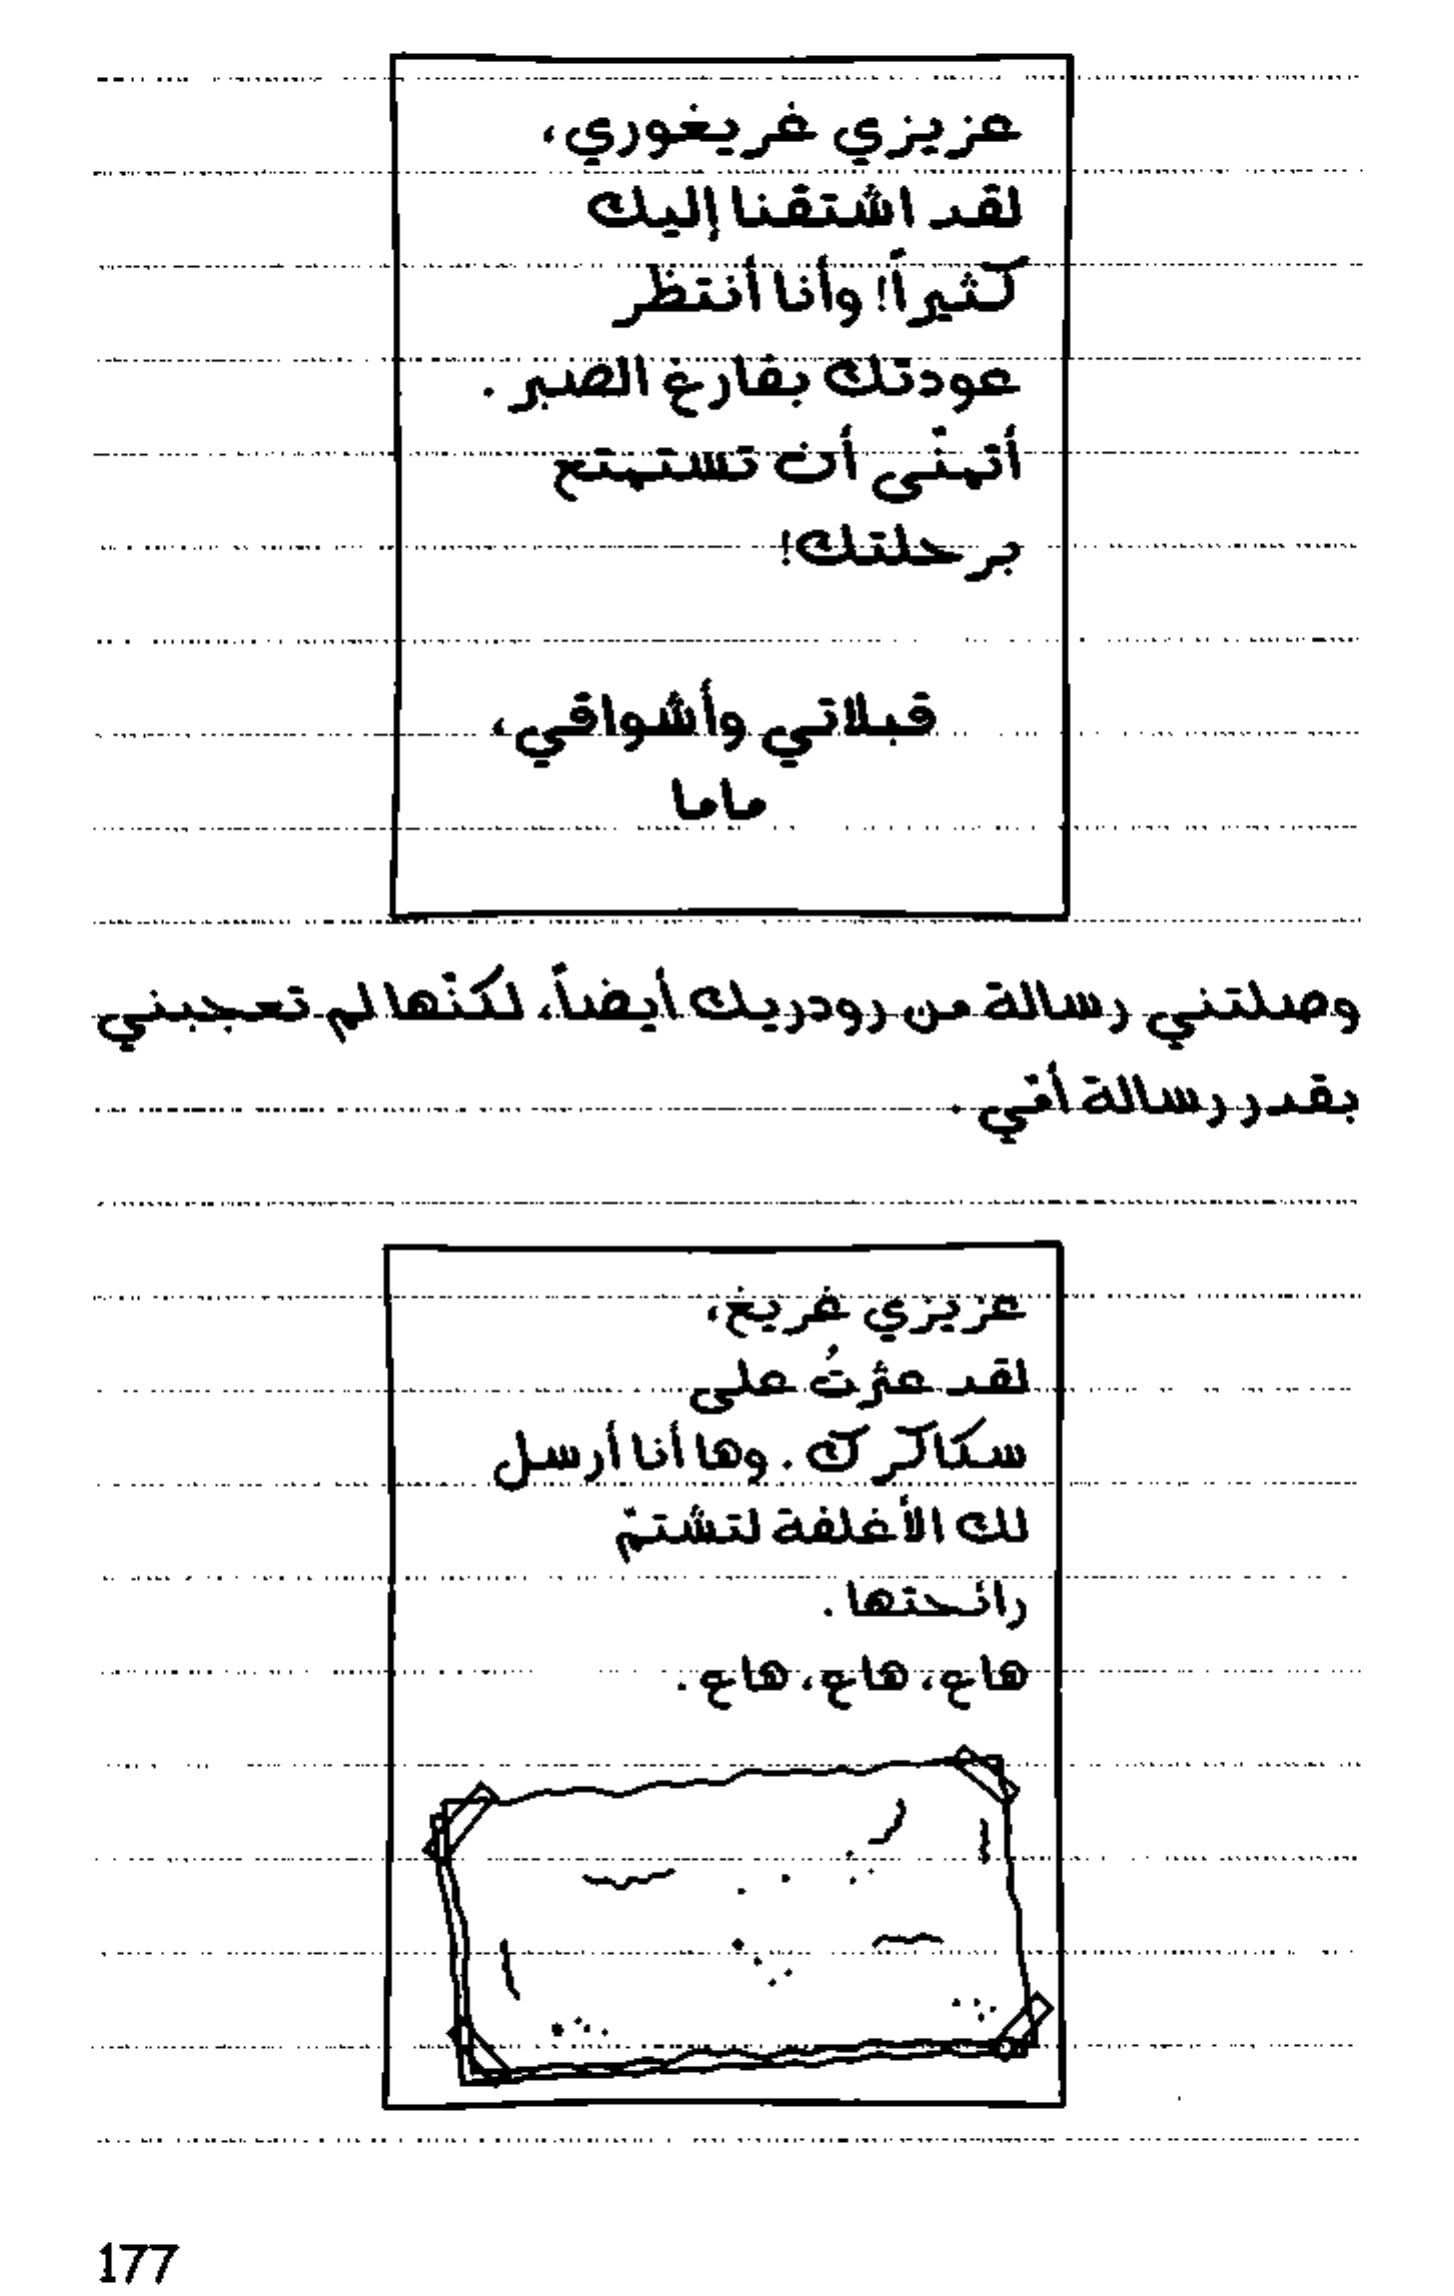 عزيزي غريغوري،
لقد اشتقنا إليك
كثيراً! وأنا أنتظر
عودتك بفارغ الصبر.
أتمنّى أن تستمتع
برحلتك!
قبلاتي وأشواقي،
ماما
وصلتني رسالة من رودريك أيضاً، لكنّها لم تعجبني
بقدر رسالة أمّي.
عزيزي غريغ،
لقد عثرتُ على
سكاكرك. وها أنا أرسل
لك الأغلفة لتشتمّ
رائحتها.
هاع، هاع، هاع.
177